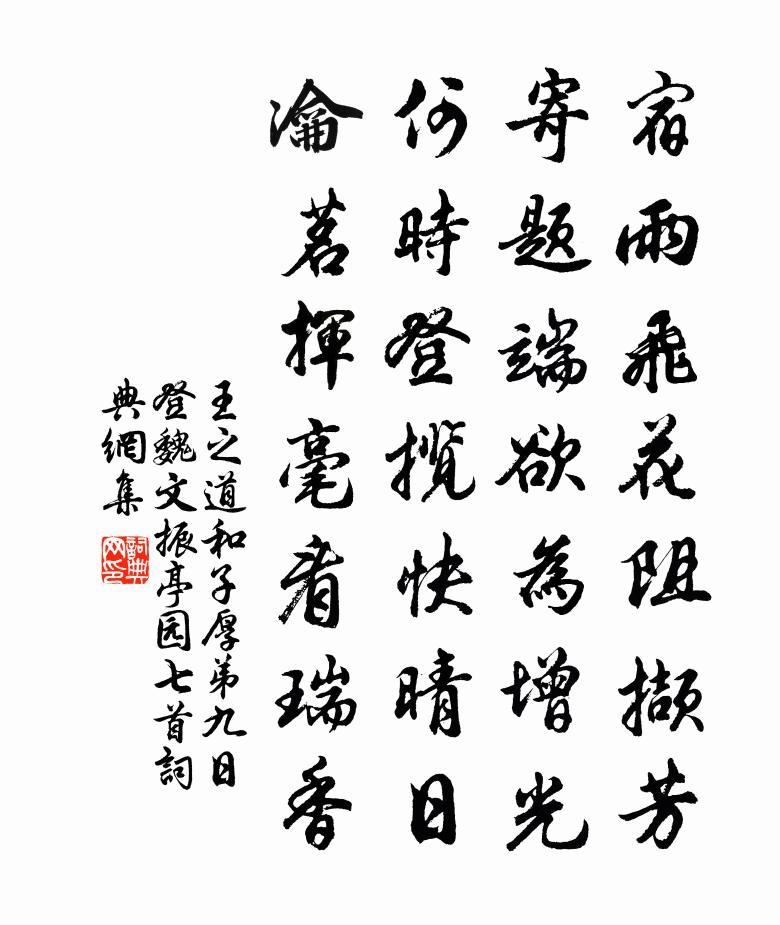 宿雨飛花阻擷芳
寄題端欲為增光
何時登揽快晴日
瀹茗揮毫看瑞香
王之道和子厚弟九日
登魏文振亭园七首詞
典網集
詞典
网印